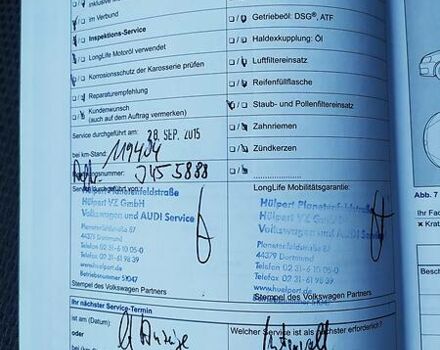 inklusive
❏/❏ Getriebeöl: DSG®, ATF
im Verbund
❏/❏ Haldexkupplung: Öl
Inspektions-Service
❏/❏ Luftfiltereinsatz
LongLife Motoröl verwendet
❏/❏ Reifenfüllflasche
Korrosionsschutz der Karosserie prüfen
❏/❏ Staub- und Pollenfiltereinsatz
Reparaturempfehlung
❏/❏ Zahnriemen
Kundenwunsch
(auch auf dem Auftrag vermerken)
❏/❏ Zündkerzen
Service durchgeführt am: 28. SEP. 2015
❏/❏
bei km-Stand: 119404
0455888
Service durchgeführt von:
LongLife Mobilitätsgarantie:
Hülpert Planetenfeldstraße
Hülpert VZ GmbH
Volkswagen und AUDI Service
Planetenfeldstraße 87
44379 Dortmund
Telefon 02 31-6 10 05-0
Telefax 02 31-61 98 39
www.huelpert.de
Betriebsnummer 51047
Stempel des Volkswagen Partners
Hülpert Planetenfeldstraße
Hülpert VZ GmbH
Volkswagen und AUDI Service
Planetenfeldstraße 87
44379 Dortmund
Telefon 02 31-6 10 05-0
Telefax 02 31-61 98 39
www.huelpert.de
Betriebsnummer 51047
Stempel des Volkswagen Partners
Ihr nächster Service-Termin
ist am (Datum)
Welcher Service ist als nächster erforderlich?
oder
Abb. 7
Ihr Fa
× Krat